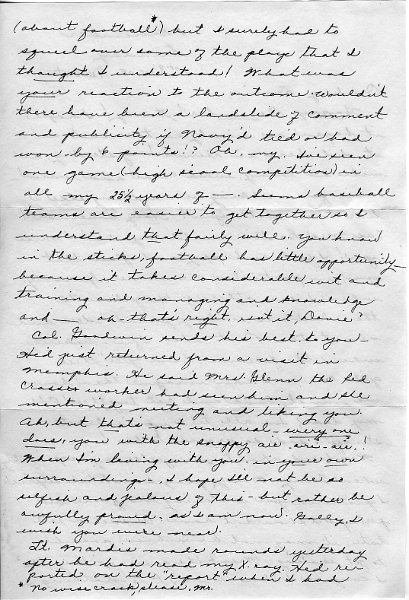 (about football*) but I surely had to
squeel over some of the plays that I
thought I understood! What was
your reaction to the outcome. Wouldn't
there have been a landslide of comment
and publicity if Navy'd tied or had
won by 6 points!? Oh, my. I've seen
one game (high scool competition) in
all my 25½ years of —. Seems baseball
teams are easier to get together so I
understand that fairly well. You know
in the sticks, football has little opportunity
because it takes considerable wit and
training and managing and knowledge
and — oh that's right, isn't it, Davie?
Col. Goodwin sends his best to you.
He'd just returned from a visit in
Memphis. He said Mrs Glenn the Red
Crosses worker had seen him and she
mentioned meeting and liking you.
Ah, but that's not unusual - every one
does, you with the snappy air
When I'm living with you in your own
surroundings -, I hope I'll not be so
selfish and jealous of this - but rather be
awfully proud, as I am now. Golly, I
wish you were near.
Lt. Mardis made rounds yesterday
after he had read my X ray. He'd re-
ported on the "report" when I had
* No wise crack, please, Mr.